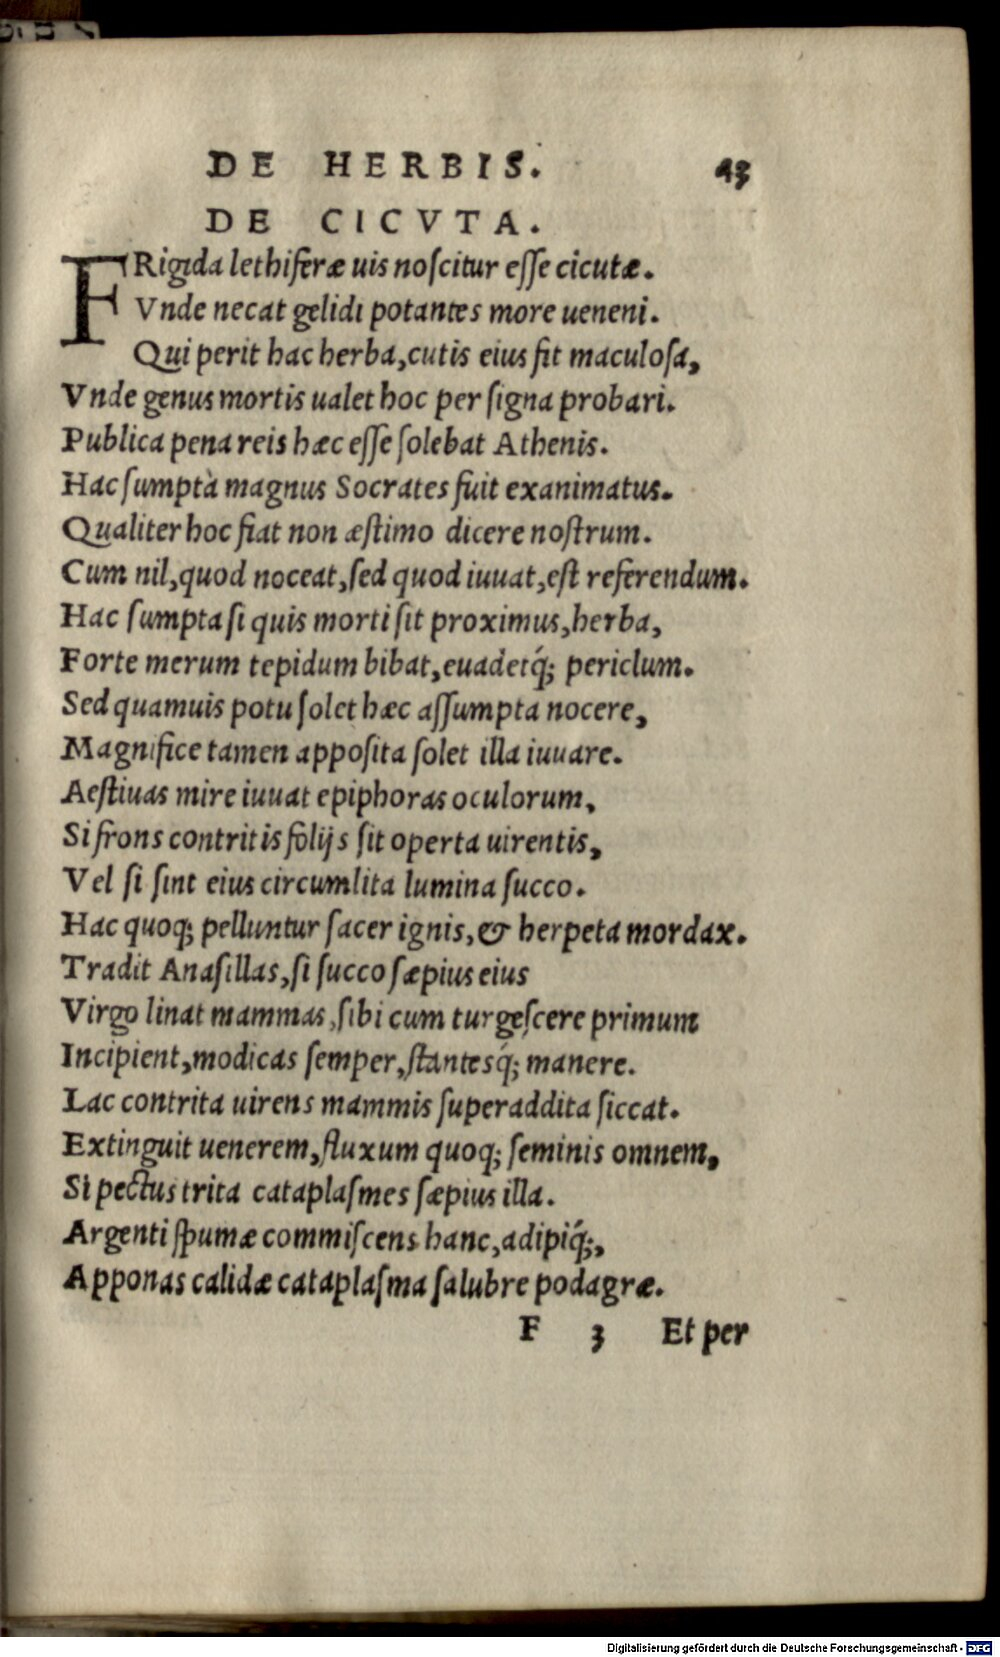 DE HERBIS. 43
DE CICVTA.
FRigida lethiferæ uis noſcitur eſſe cicutæ.
Vnde necat gelidi potantes more ueneni.
Qui perit hac herba, cutis eius fit maculoſa,
Vnde genus mortis ualet hoc per ſigna probari.
Publica pena reis hæc eſſe ſolebat Athenis.
Hac ſumptà magnus Socrates fuit exanimatus.
Qualiter hoc fiat non æſtimo dicere noſtrum.
Cum nil, quod noceat, ſed quod iuuat, eſt referendum.
Hac ſumpta ſi quis morti ſit proximus, herba,
Forte merum tepidum bibat, euadetq́; periclum.
Sed quamuis potu ſolet hæc aſſumpta nocere,
Magnifice tamen appoſita ſolet illa iuuare.
Aeſtiuas mire iuuat epiphoras oculorum,
Si frons contritis folijs ſit operta uirentis,
Vel ſi ſint eius circumlita lumina ſucco.
Hac quoq; pelluntur ſacer ignis, & herpeta mordax.
Tradit Anaſillas, ſi ſucco ſæpius eius
Virgo linat mammas, ſibi cum turgeſcere primum
Incipient, modicas ſemper, ſtantesq́; manere.
Lac contrita uirens mammis ſuperaddita ſiccat.
Extinguit uenerem, fluxum quoq; ſeminis omnem,
Si pectus trita cataplaſmes ſæpius illa.
Argenti ſpumæ commiſcens hanc, adipiq́;,
Apponas calidæ cataplaſma ſalubre podagræ.
F 3 Et per
Digitalisierung gefördert durch die Deutsche Forschungsgemeinschaft - DFG